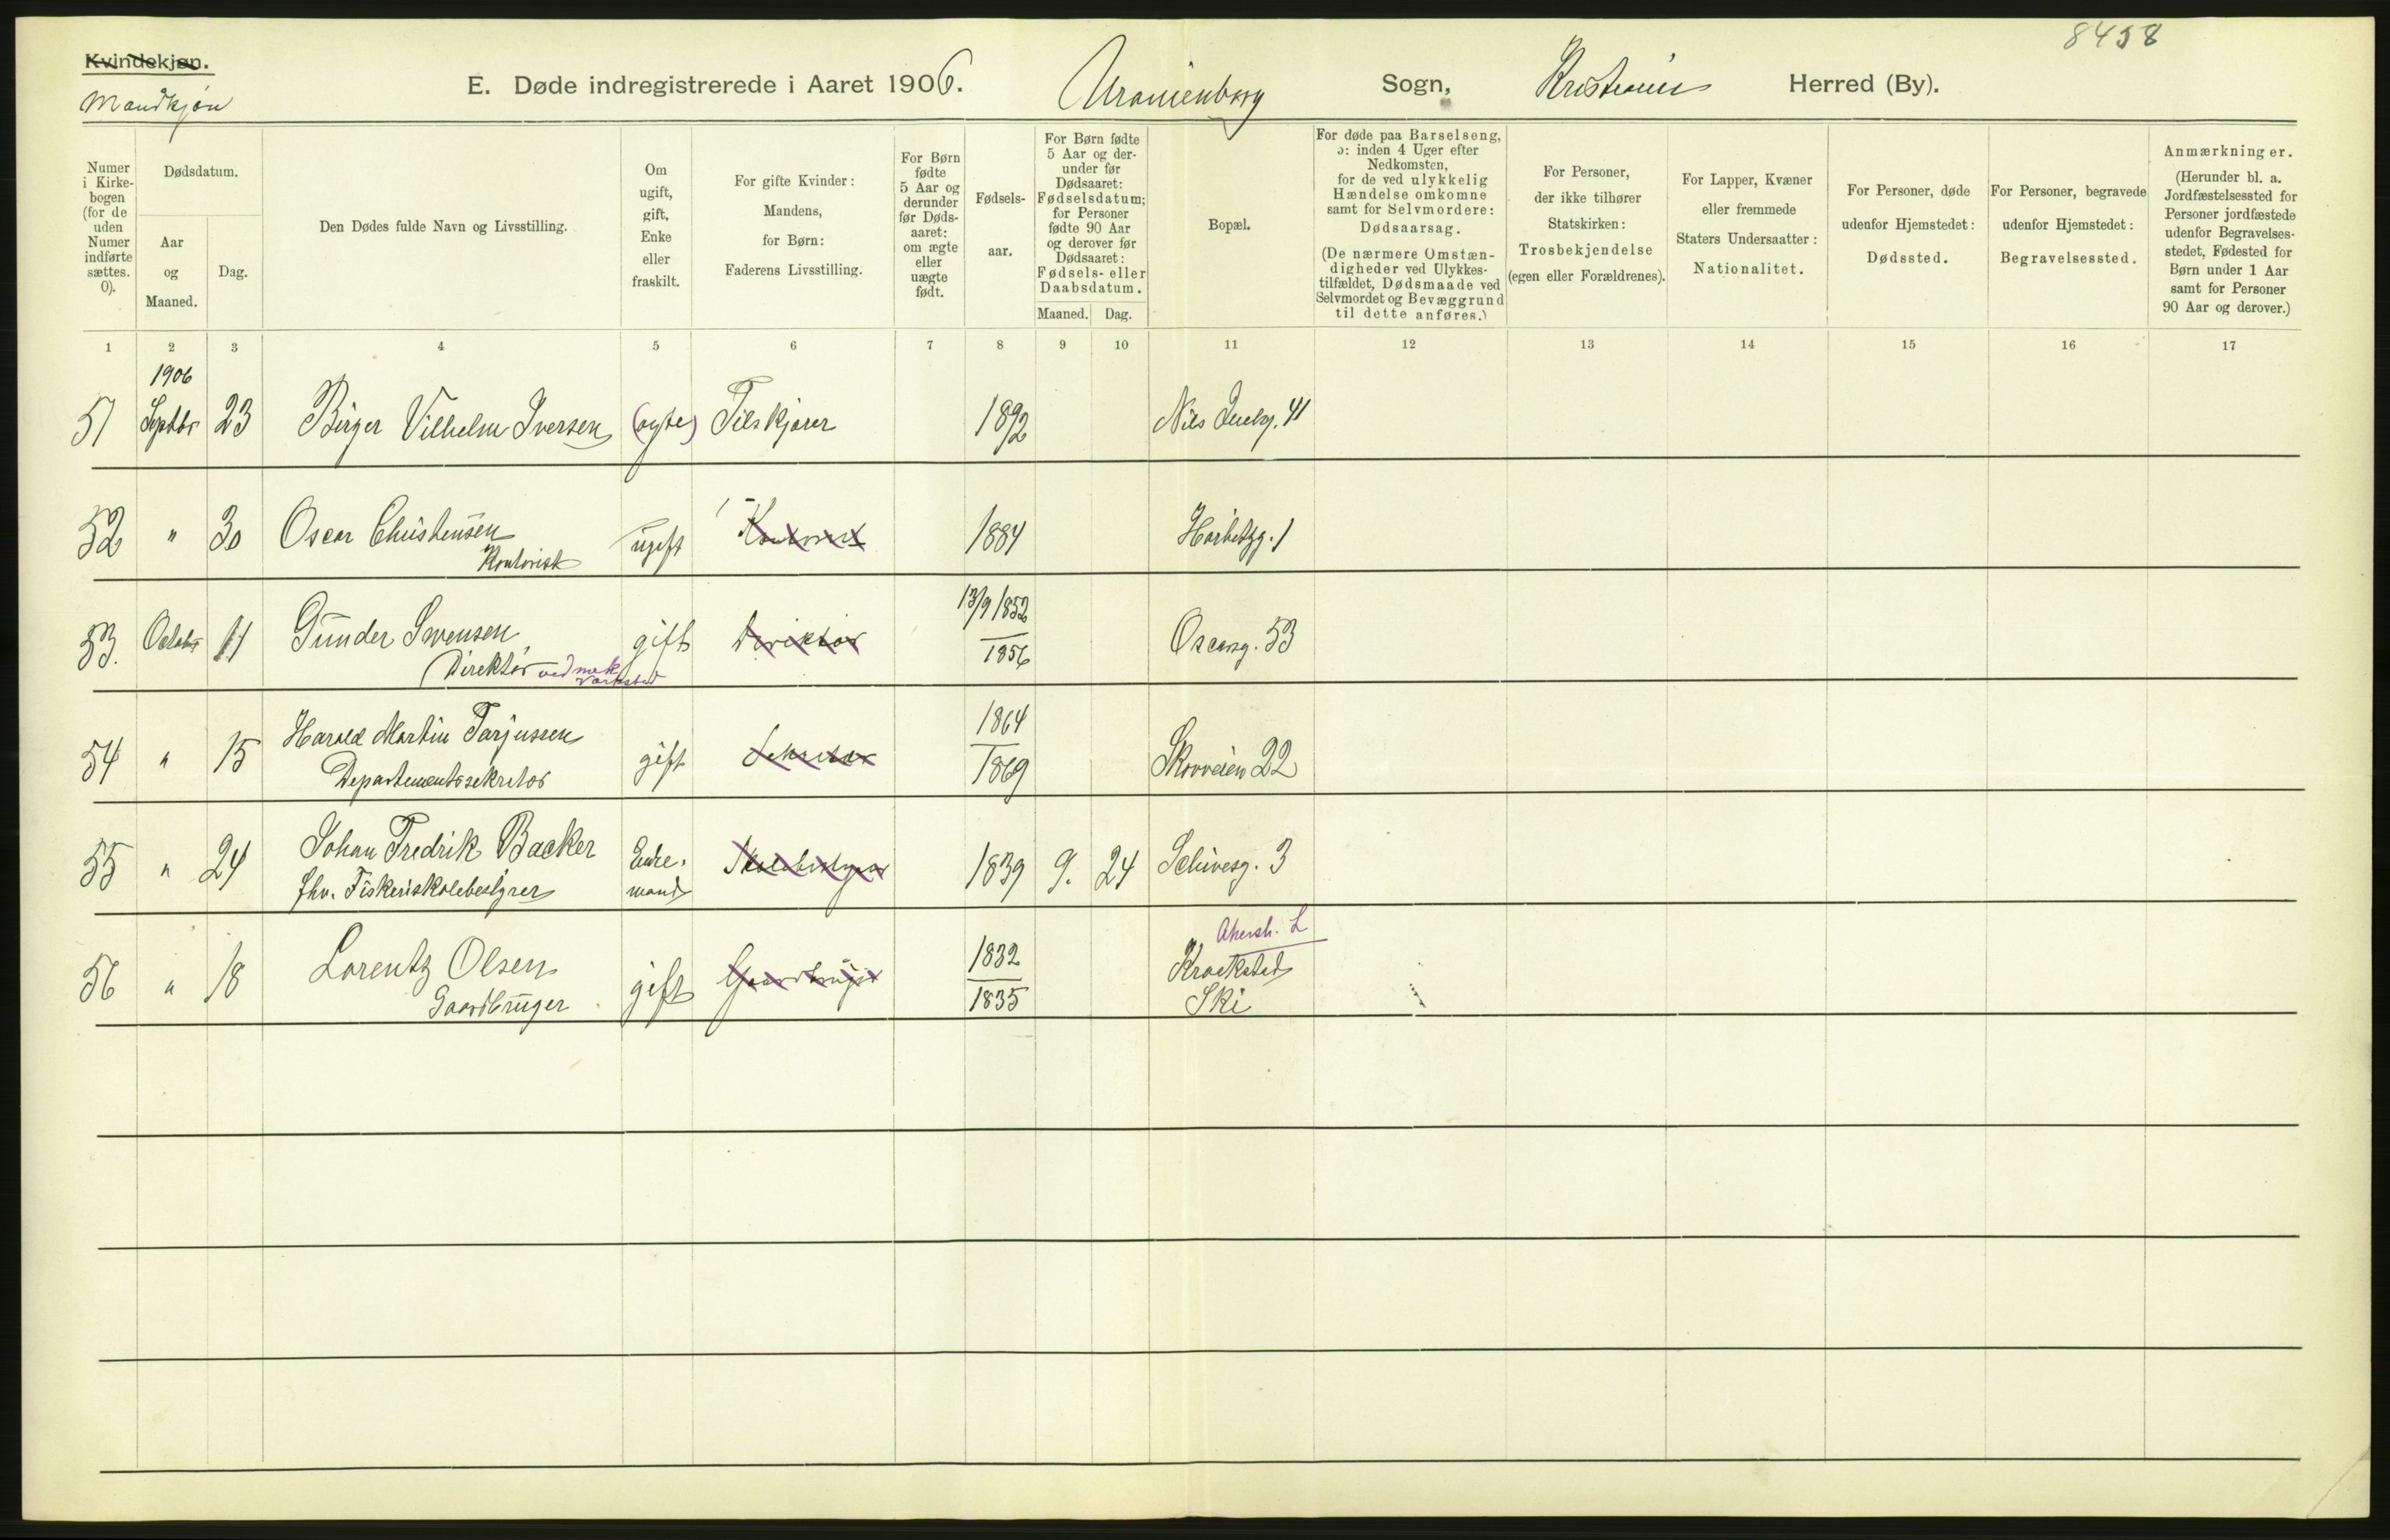 8458
Kvindekjøn.
Mandkjøn
E. Døde indregistrerede i Aaret 1906. Uranienborg Sogn, Kristiania Herred (By).
Numer i Kirkebogen (for de uden Numer indførte sættes. 0).
Dødsdatum.
Aar og Maaned.
Dag.
Den Dødes fulde Navn og Livsstilling.
Om ugift, gift, Enke eller fraskilt.
For gifte Kvinder: Mandens, for Børn: Faderens Livsstilling.
For Børn fødte 5 Aar og derunder før Dødsaaret: om ægte eller uægte født.
Fødselsaar.
For Børn fødte 5 Aar og derunder før Dødsaaret: Fødselsdatum; for Personer fødte 90 Aar og derover før Dødsaaret: Fødsels- eller Daabsdatum.
Maaned. Dag.
Bopæl.
For døde paa Barselseng, ɔ: inden 4 Uger efter Nedkomsten, for de ved ulykkelig Hændelse omkomne samt for Selvmordere: Dødsaarsag.
(De nærmere Omstændigheder ved Ulykkestilfældet, Dødsmaade ved Selvmordet og Bevæggrund til dette anføres.)
For Personer, der ikke tilhører Statskirken: Trosbekjendelse (egen eller Forældrenes).
For Lapper, Kvæner eller fremmede Staters Undersaatter: Nationalitet.
For Personer, døde udenfor Hjemstedet: Dødssted.
For Personer, begravede udenfor Hjemstedet: Begravelsessted.
Anmærkninger.
(Herunder bl. a. Jordfæstelsessted for Personer jordfæstede udenfor Begravelsesstedet, Fødested for Børn under 1 Aar samt for Personer 90 Aar og derover.)
1 2 3 4 5 6 7 8 9 10 11 12 13 14 15 16 17
1906
51 Septbr 23 Birger Vilhelm Iversen (ægte) 1892 Nils Juelsg. 41
52 " 30 Oscar Christensen ugift Kontorist 1884 Harbitzg. 1
Kontorist
53. Octobr 11 Gunder Svensen gift Direktør 13/9 1852 Oscarsg. 53
Direktør ved mek Værksted 1856
54 " 15 Harald Martin Tarjussen gift Sekretær 1864 Skovveien 22
Departementssekretær 1869
55 " 24 Johan Fredrik Backer Enkemand Skolebestyrer 1839 9. 24 Schivesg. 3
fhv. Fiskeriskolebestyrer
56 " 18 Lorentz Olsen gift Gaardbruger 1832 Akersh. L
Gaardbruger 1835 Kraakstad
Ski